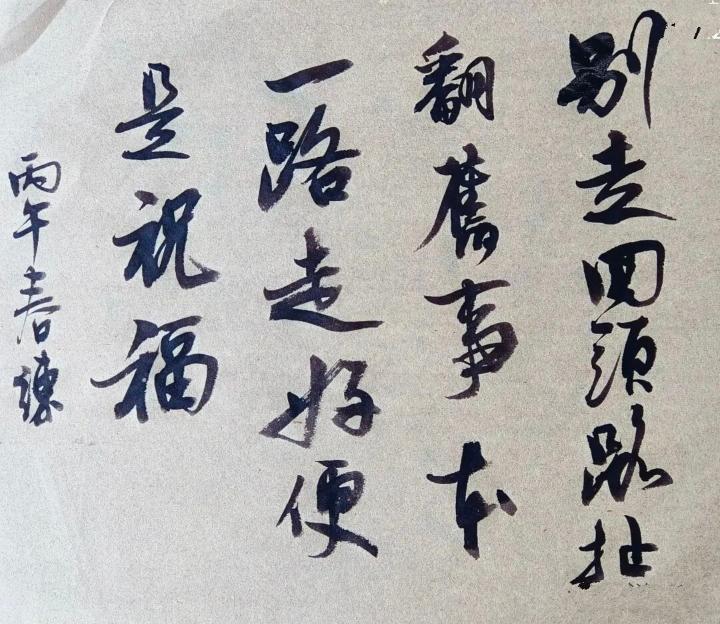 别走回頭路扯
翻舊事本
一路走好便
是祝福
丙午春練